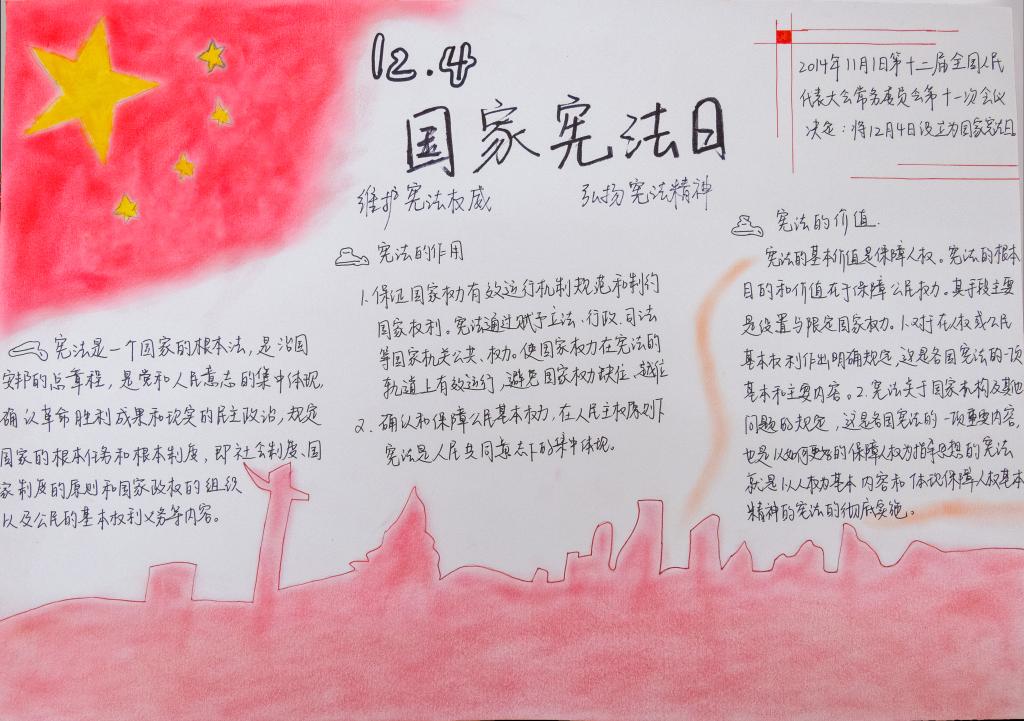 12.4
国家宪法日
维护宪法权威
弘扬宪法精神
2014年11月1日第十二届全国人民
代表大会常务委员会第十一次会议
决定：将12月4日设立为国家宪法日
宪法是一个国家的根本法，是治国
安邦的总章程，是党和人民意志的集中体现，
确认革命胜利成果和现实的民主政治，规定
国家的根本任务和根本制度，即社会制度、国
家制度的原则和国家政权的组织
以及公民的基本权利义务等内容。
宪法的作用
1.保证国家权力有效运行机制规范和制约
国家权利。宪法通过赋予立法、行政、司法
等国家机关公共、权力。使国家权力在宪法的
轨道上有效运行，避免国家权力缺位、越位
2.确认和保障公民基本权力，在人民主权原则下
宪法是人民共同意志下的集中体现。
宪法的价值.
宪法的基本价值是保障人权。宪法的根本
目的和价值在于保障公民权力。其手段主要
是设置与限定国家权力。1.对于在人权或公民
基本权利作出明确规定，这是各国宪法的一项
基本和主要内容。2.宪法关于国家机构及其他
问题的规定，这是各国宪法的一项重要内容，
也是以如何更好的保障人权为指导思想的宪法
就是以人权为基本内容和体现保障人权基本
精神的宪法的彻底实施。